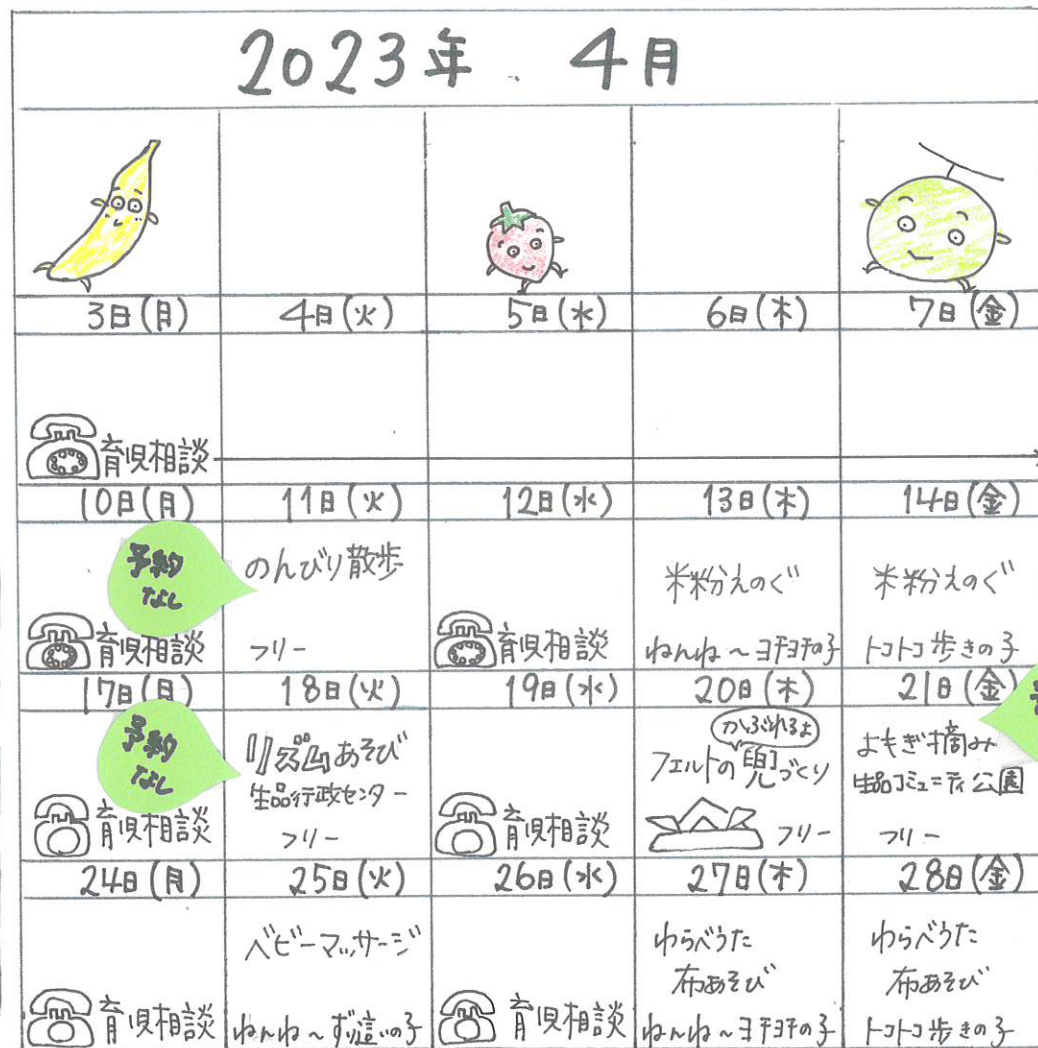 2023年 4月
3日(月) 4日(火) 5日(水) 6日(木) 7日(金)
育児相談
10日(月) 11日(火) 12日(水) 13日(木) 14日(金)
予約
なし
育児相談
のんびり散歩
フリー
育児相談
米粉えのぐ
ねんね~ヨチヨチの子
米粉えのぐ
トコトコ歩きの子
17日(月) 18日(火) 19日(水) 20日(木) 21日(金)
予約
なし
育児相談
リズムあそび
生品行政センター
フリー
育児相談
かぶれるよ
フェルトの兜づくり
フリー
よもぎ摘み
生品コミュニティ公園
フリー
24日(月) 25日(火) 26日(水) 27日(木) 28日(金)
育児相談
ベビーマッサージ
ねんね~ずり這いの子
育児相談
わらべうた
布あそび
ねんね~ヨチヨチの子
わらべうた
布あそび
トコトコ歩きの子